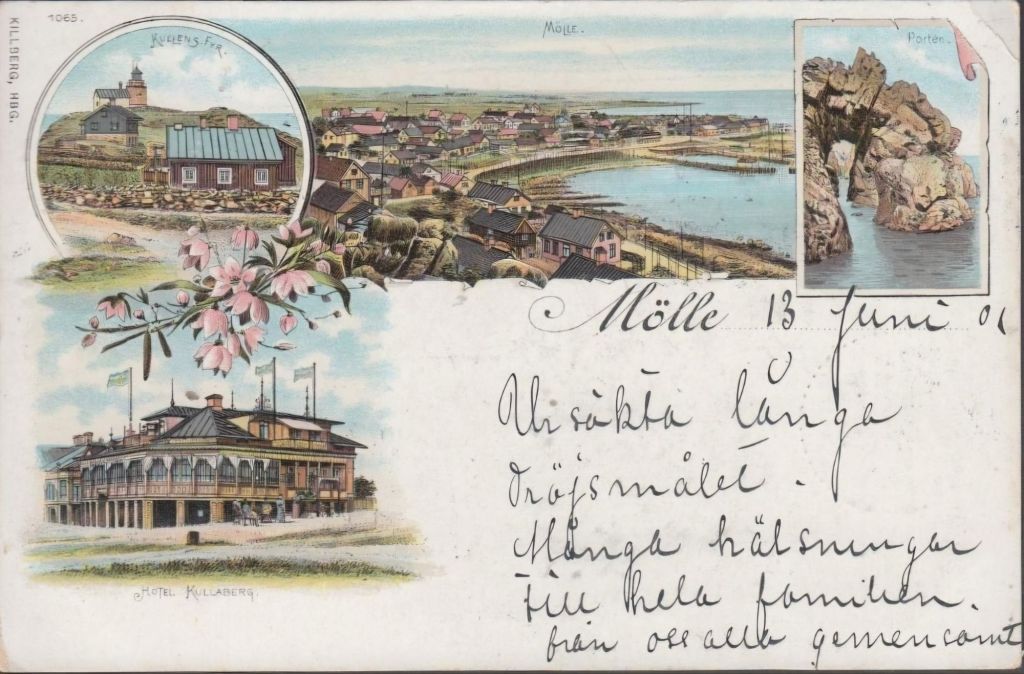 1065.
KILLBERG, HBG.
KULLENS FYR.
MÖLLE.
Porten.
Mölle 13 Juni 01
Ursäkta långa
dröjsmålet.
Många hälsningar
till hela familien.
från oss alla gemensamt
HOTEL KULLABERG.